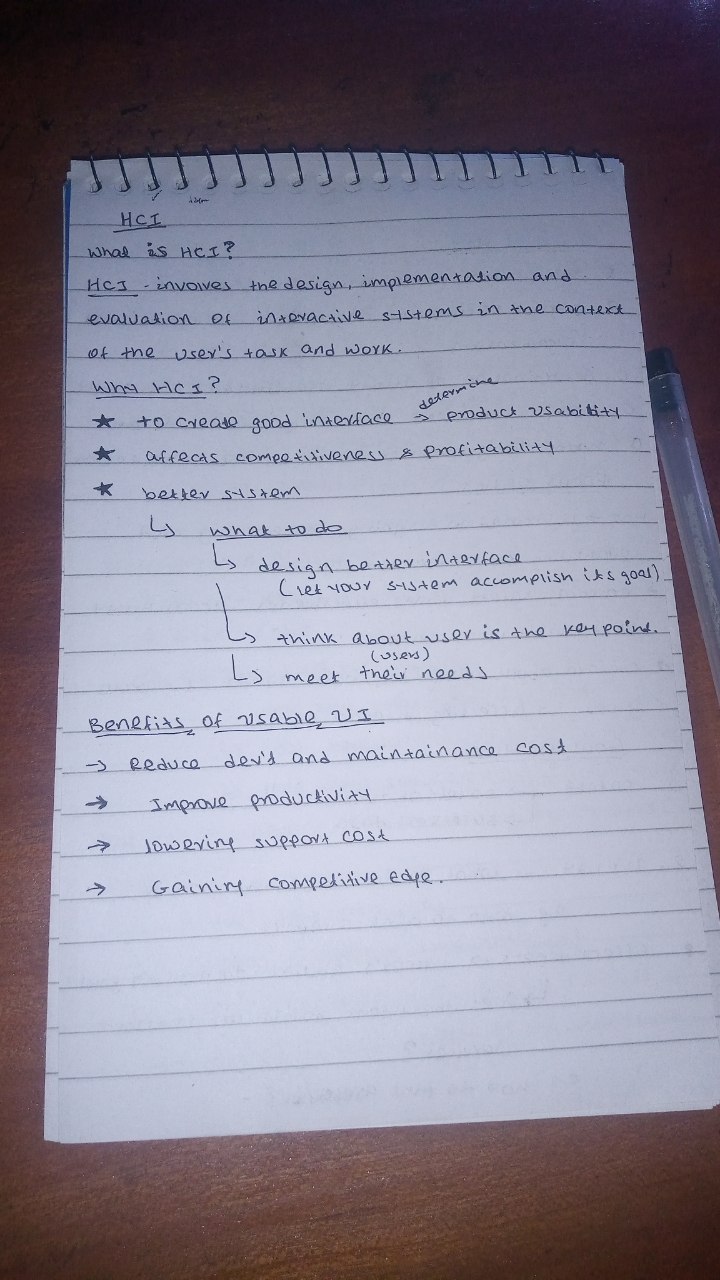 HCI
What is HCI?
HCI - involves the design, implementation and
evaluation of interactive systems in the context
of the user's task and work.
Why HCI?
★ to create good interface → determine product usability
★ affects competitiveness & profitability
★ better system
↳ what to do
↳ design better interface
(let your system accomplish its goal)
↳ think about user is the key point.
(users)
↳ meet their needs
Benefits of usable UI
→ Reduce dev't and maintainance cost
→ Improve productivity
→ lowering support cost
→ Gaining competitive edge.